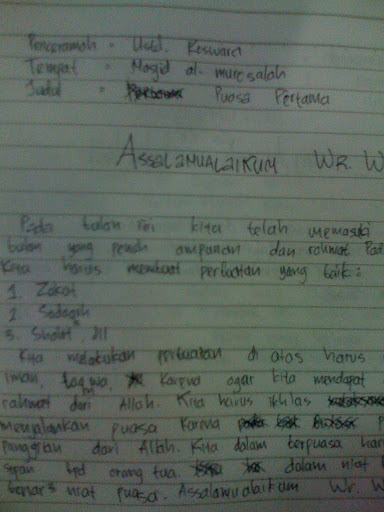 Penceramah = Usd. Keswara
Tempat = Masjid al- mursalah
Judul = Puasa Pertama
ASSALAMUALAIKUM WR. W
Pada bulan ini kita telah memasuki
bulan yang penuh ampunan dan rahmat Pad
Kita harus membuat perbuatan yang baik:
1. Zakat
2. Sedaqih
3. Sholat, dll
Kita melakukan perbuatan di atas harus
iman, taqwa, Karena agar kita mendapat
rahmat dari Allah. Kita harus ikhlas
menjalankan puasa karena
dari Allah. Kita dalam berpuasa har
sopan kpd orang tua. dalam niat
benar2 niat puasa. Assalamualaikum Wr. W